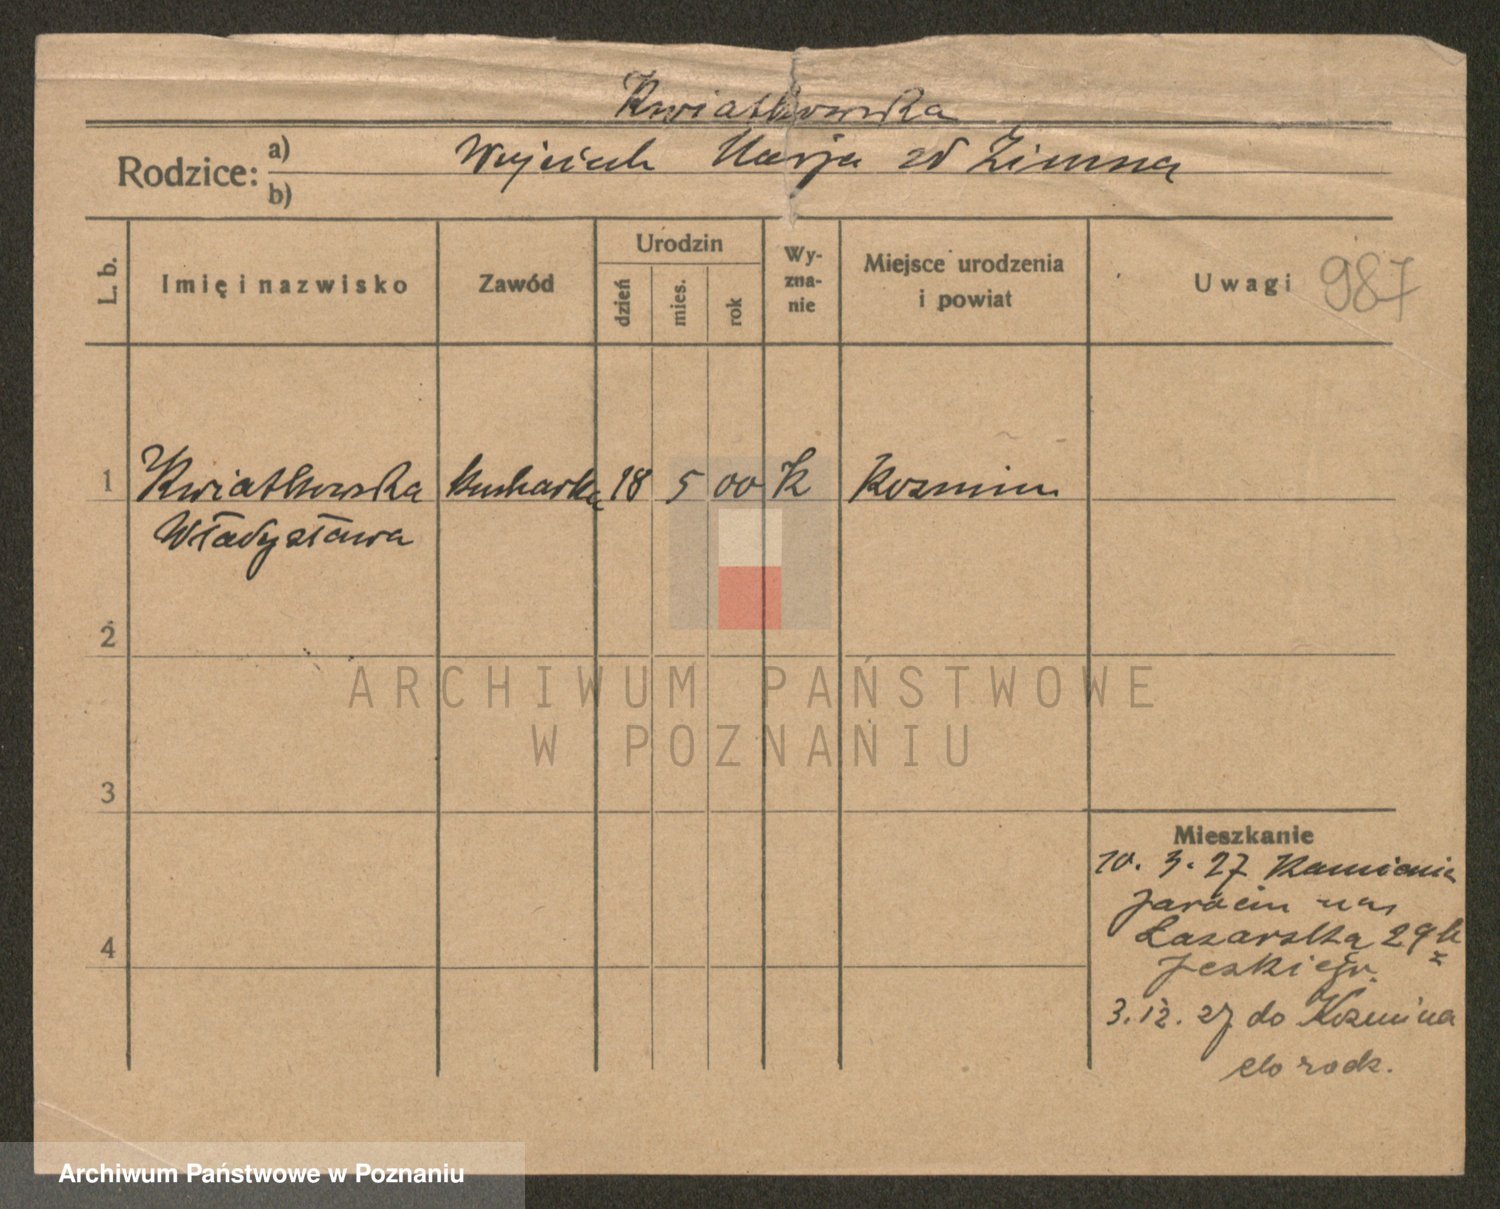 Kwiatkowska
Rodzice: a) Wojciech Marja zd Zimna
b)
L. b.
Imię i nazwisko
Zawód
Urodzin
dzień
mies.
rok
Wy-
zna-
nie
Miejsce urodzenia
i powiat
Uwagi 987
1 Kwiatkowska kucharka 18 5 00 k Kozmin
Władysława
2
3
4
ARCHIWUM PAŃSTWOWE
W POZNANIU
Mieszkanie
10. 3. 27
Jarocin
Łazarska 29
Jeskiego
3. 12. 27 do Kozmina
do rodz.
Archiwum Państwowe w Poznaniu